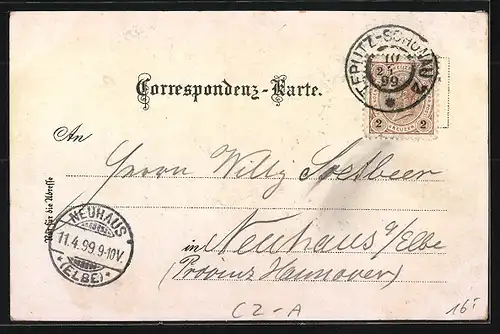 TEPLITZ-SCHÖNAU
10
4
99
KREUZER
2 2
Correspondenz-Karte.
An
Herrn Willy Soetbeer
in Neuhaus a/Elbe
(Provinz Hannover)
Nur für die Adresse
NEUHAUS
11.4.99.9-10V.
(ELBE)
CZ-A
16.-